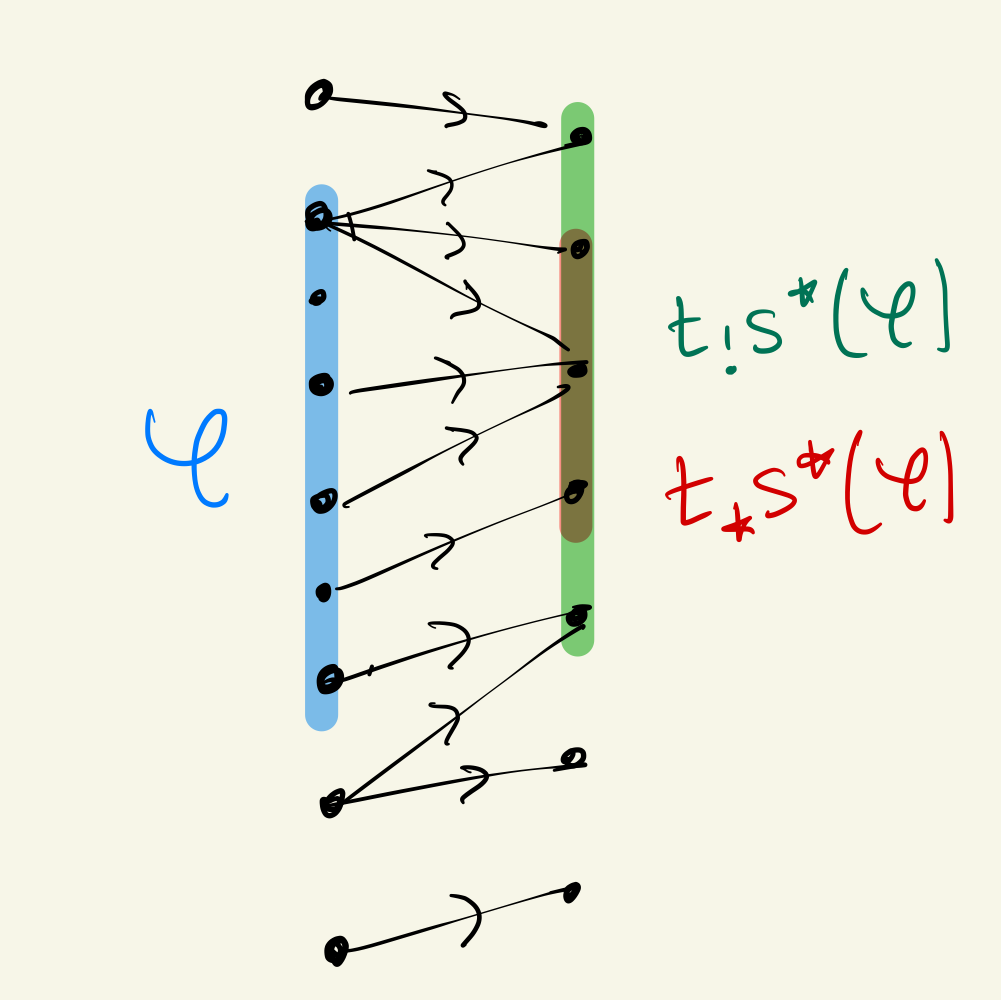 φ
t!s*(φ)
t*s*(φ)